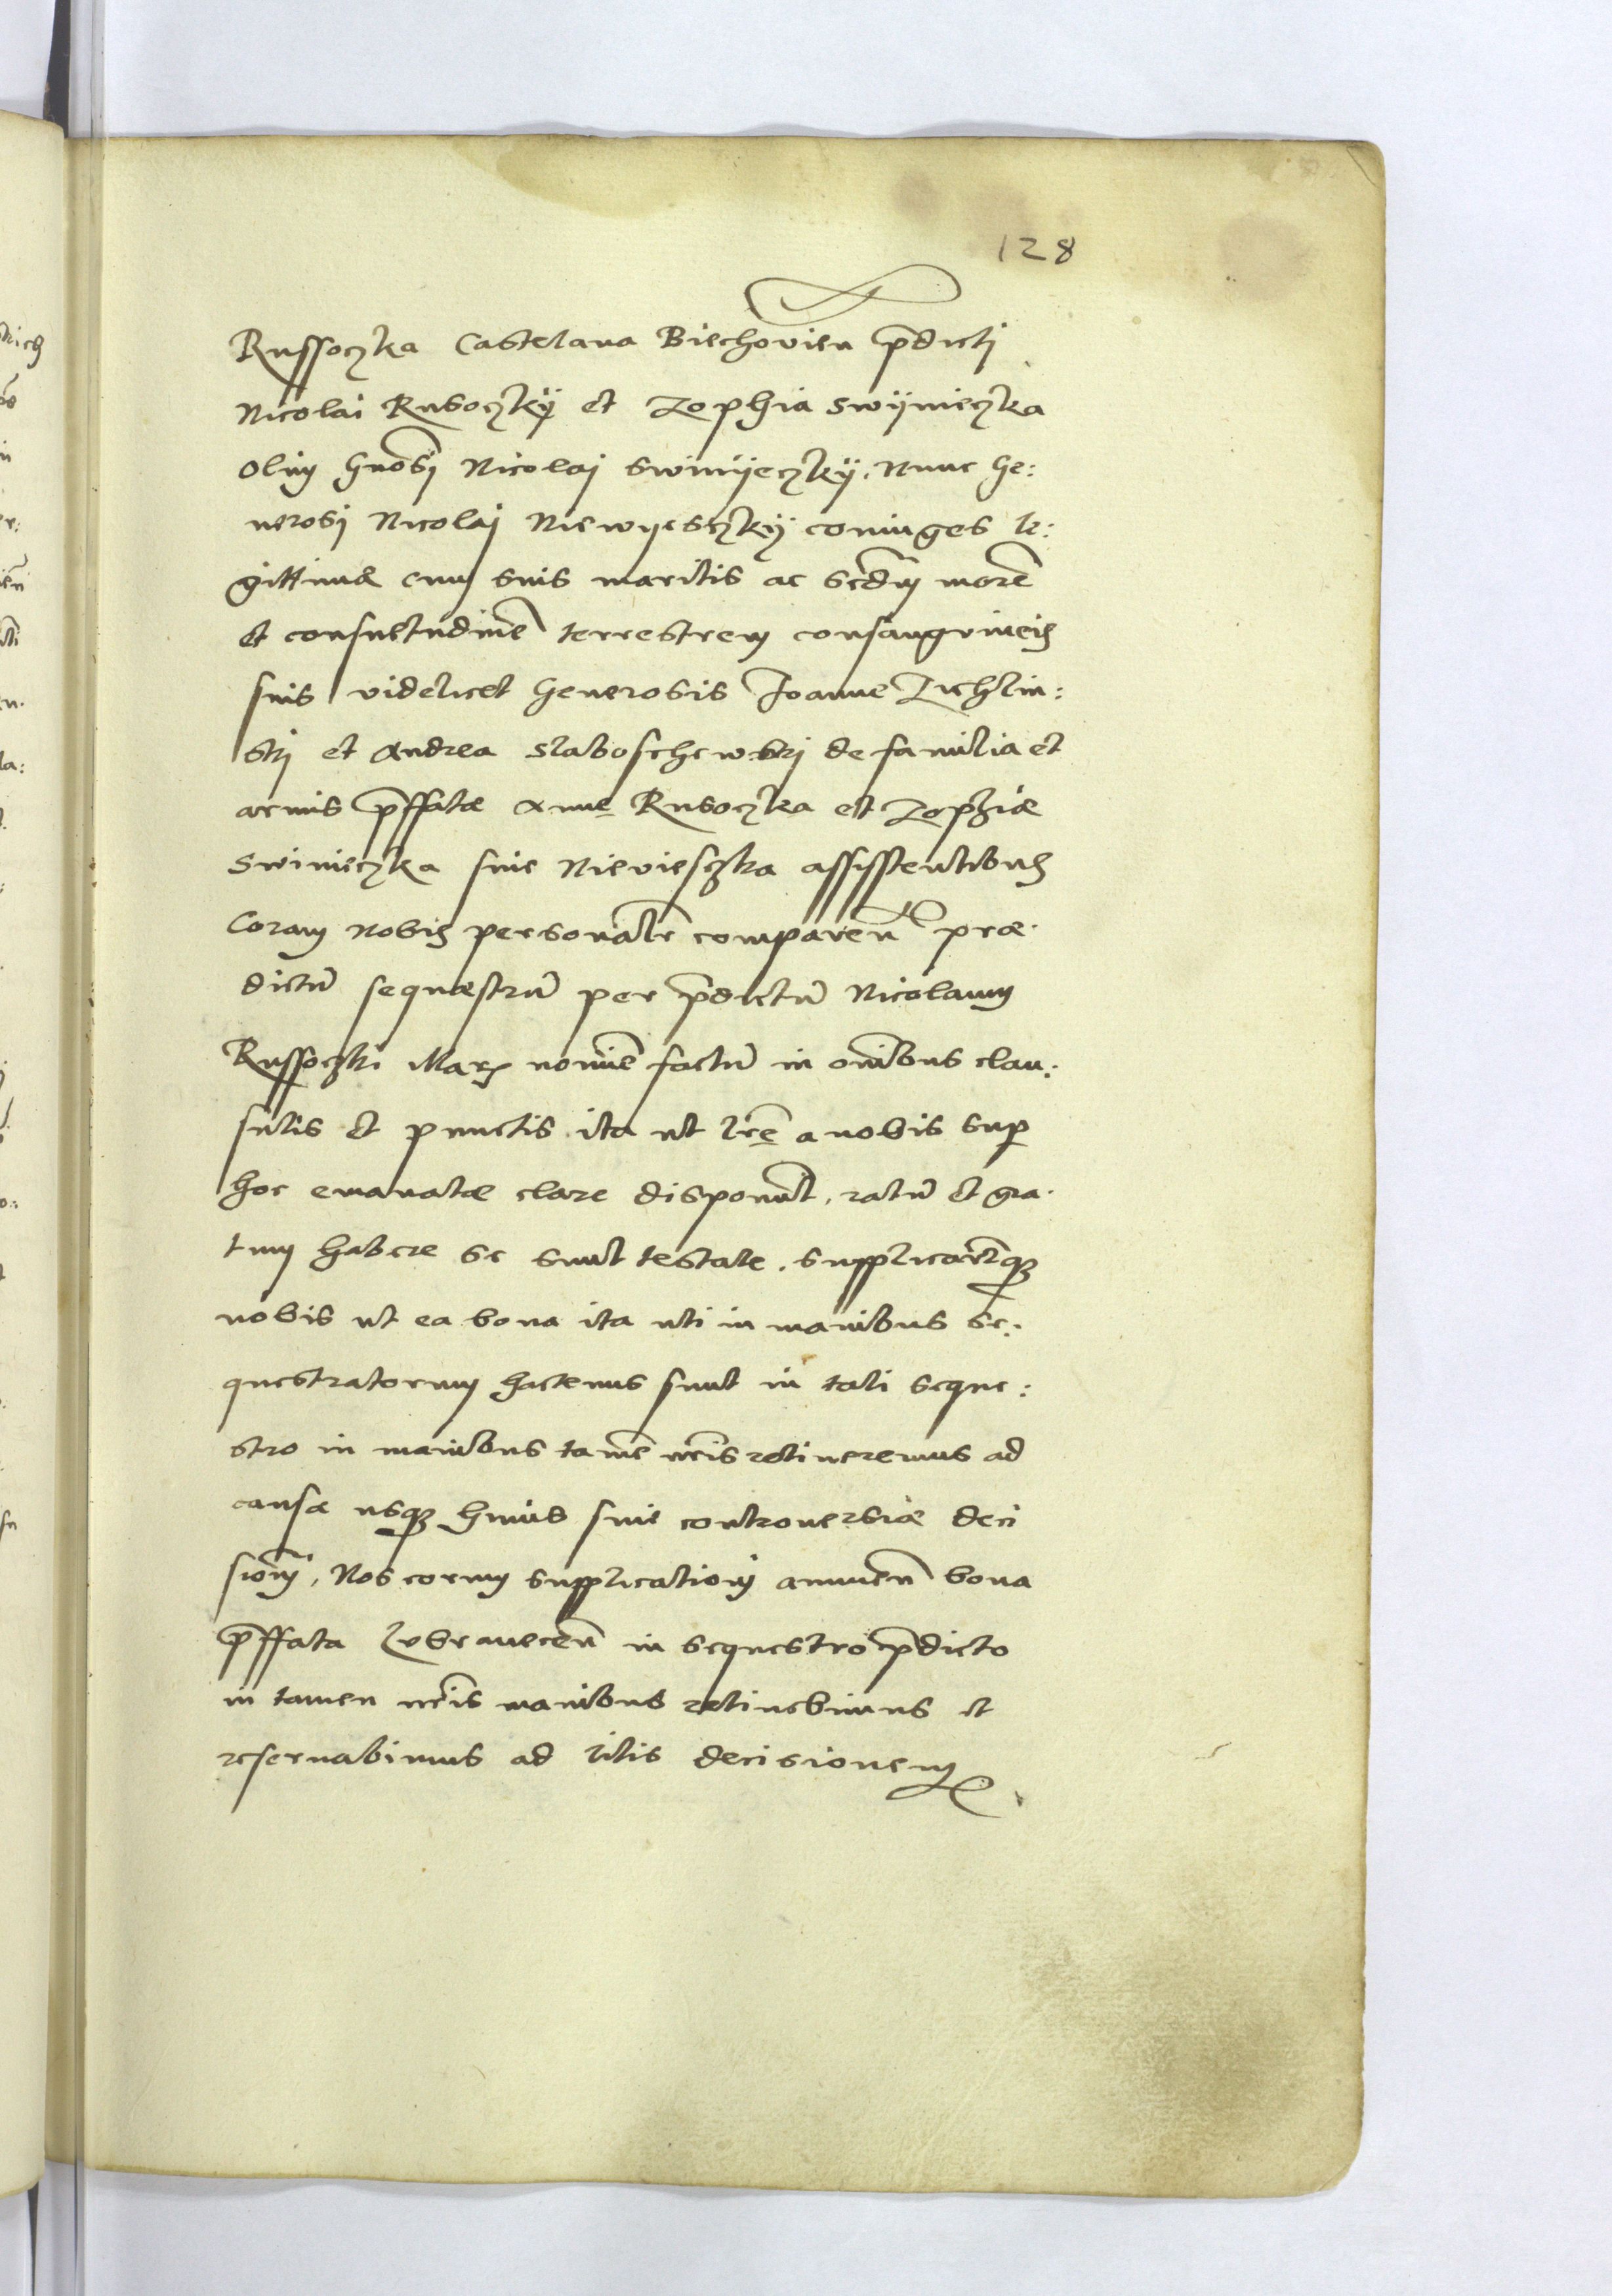 128
Russoczka Castelana Biechovien p̄dictj
Nicolai Rusoczkÿ et Zophia Swÿnieczka
olim gn̄osj Nicolaj Swinÿeczkÿ. Nunc Ge:
nerosj Nicolaj Niewÿesczkÿ coniuges le:
gittimæ cum suis maritis ac scd̄m morē
et consuetudinē terrestrem consangvineis
suis videlicet Generosis Joanne Zichlin:
skj et Andrea Slaboschewskj de familia et
armis p̄ffatæ Annę Rusoczka et Zophiæ
Swinieczka siue Nieviesczka assistentibus
Coram nobis personalr̄ comparen̄ præ
dictū sequæstrū per p̄dictū Nicolaum
Russoczki Marj nomīe factū in om̄ibus clau:
sulis et punctis ita ut lr̄ę a nobis sup
hoc emanatæ clare disponūt, ratū et gra
tum habere se sunt testate. supplicarūtq
nobis ut ea bona ita uti in manibus se:
questratorum hactenus sunt in tali seque:
stro in manibus tamē nr̄is retineremus ad
causæ usq huius siue controuersiæ deci
sionē, Nos eorum supplicationj annuen̄ bona
p̄ffata Lvbranecen̄ in sequestro p̄dicto
in tamen nr̄is manibus retinebimus et
reseruabimus ad litis decisionem